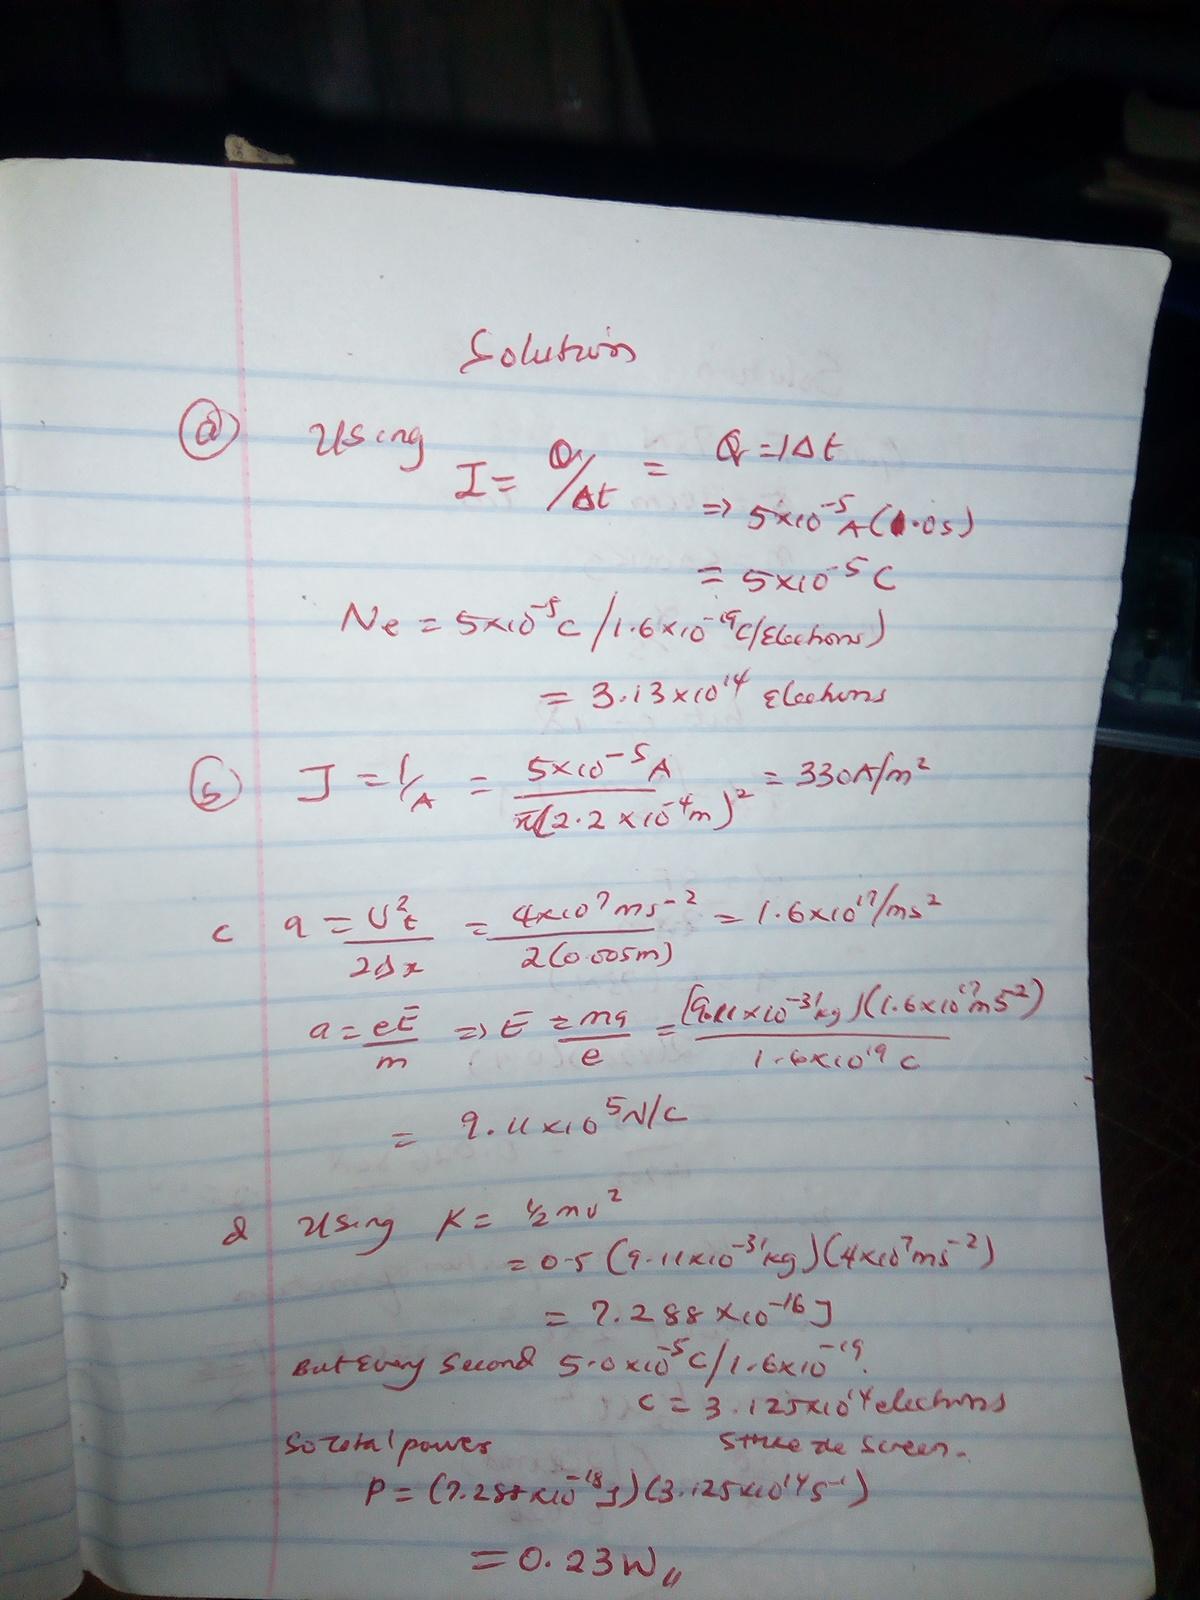 Solution
(a) Using I = Q/Δt = Q = IΔt
=> 5×10^-5 A (1.0s)
= 5×10^-5 C
Ne = 5×10^-5 C / 1.6×10^-19 C/Electrons)
= 3.13×10^14 Electrons
(b) J = I/A = 5×10^-5 A / π(2.2×10^-4 m)^2 = 330A/m^2
c a = U^2_t / 2Δx = 4×10^7 ms^-2 / 2(0.005m) = 1.6×10^17/ms^2
a = eE/m => E = ma/e = [9.11×10^-31 kg)(1.6×10^17 ms^-2) / 1.6×10^19 C
= 9.11×10^5 N/C
d Using K = 1/2 mv^2
= 0.5 (9.11×10^-31 kg)(4×10^7 ms^-2)
= 7.288×10^-16 J
But Every Second 5.0×10^-5 C/1.6×10^-19.
C = 3.125×10^14 electrons
So total power strike the screen.
P = (7.288×10^-18 J)(3.125×10^14 s^-1)
= 0.23W,,